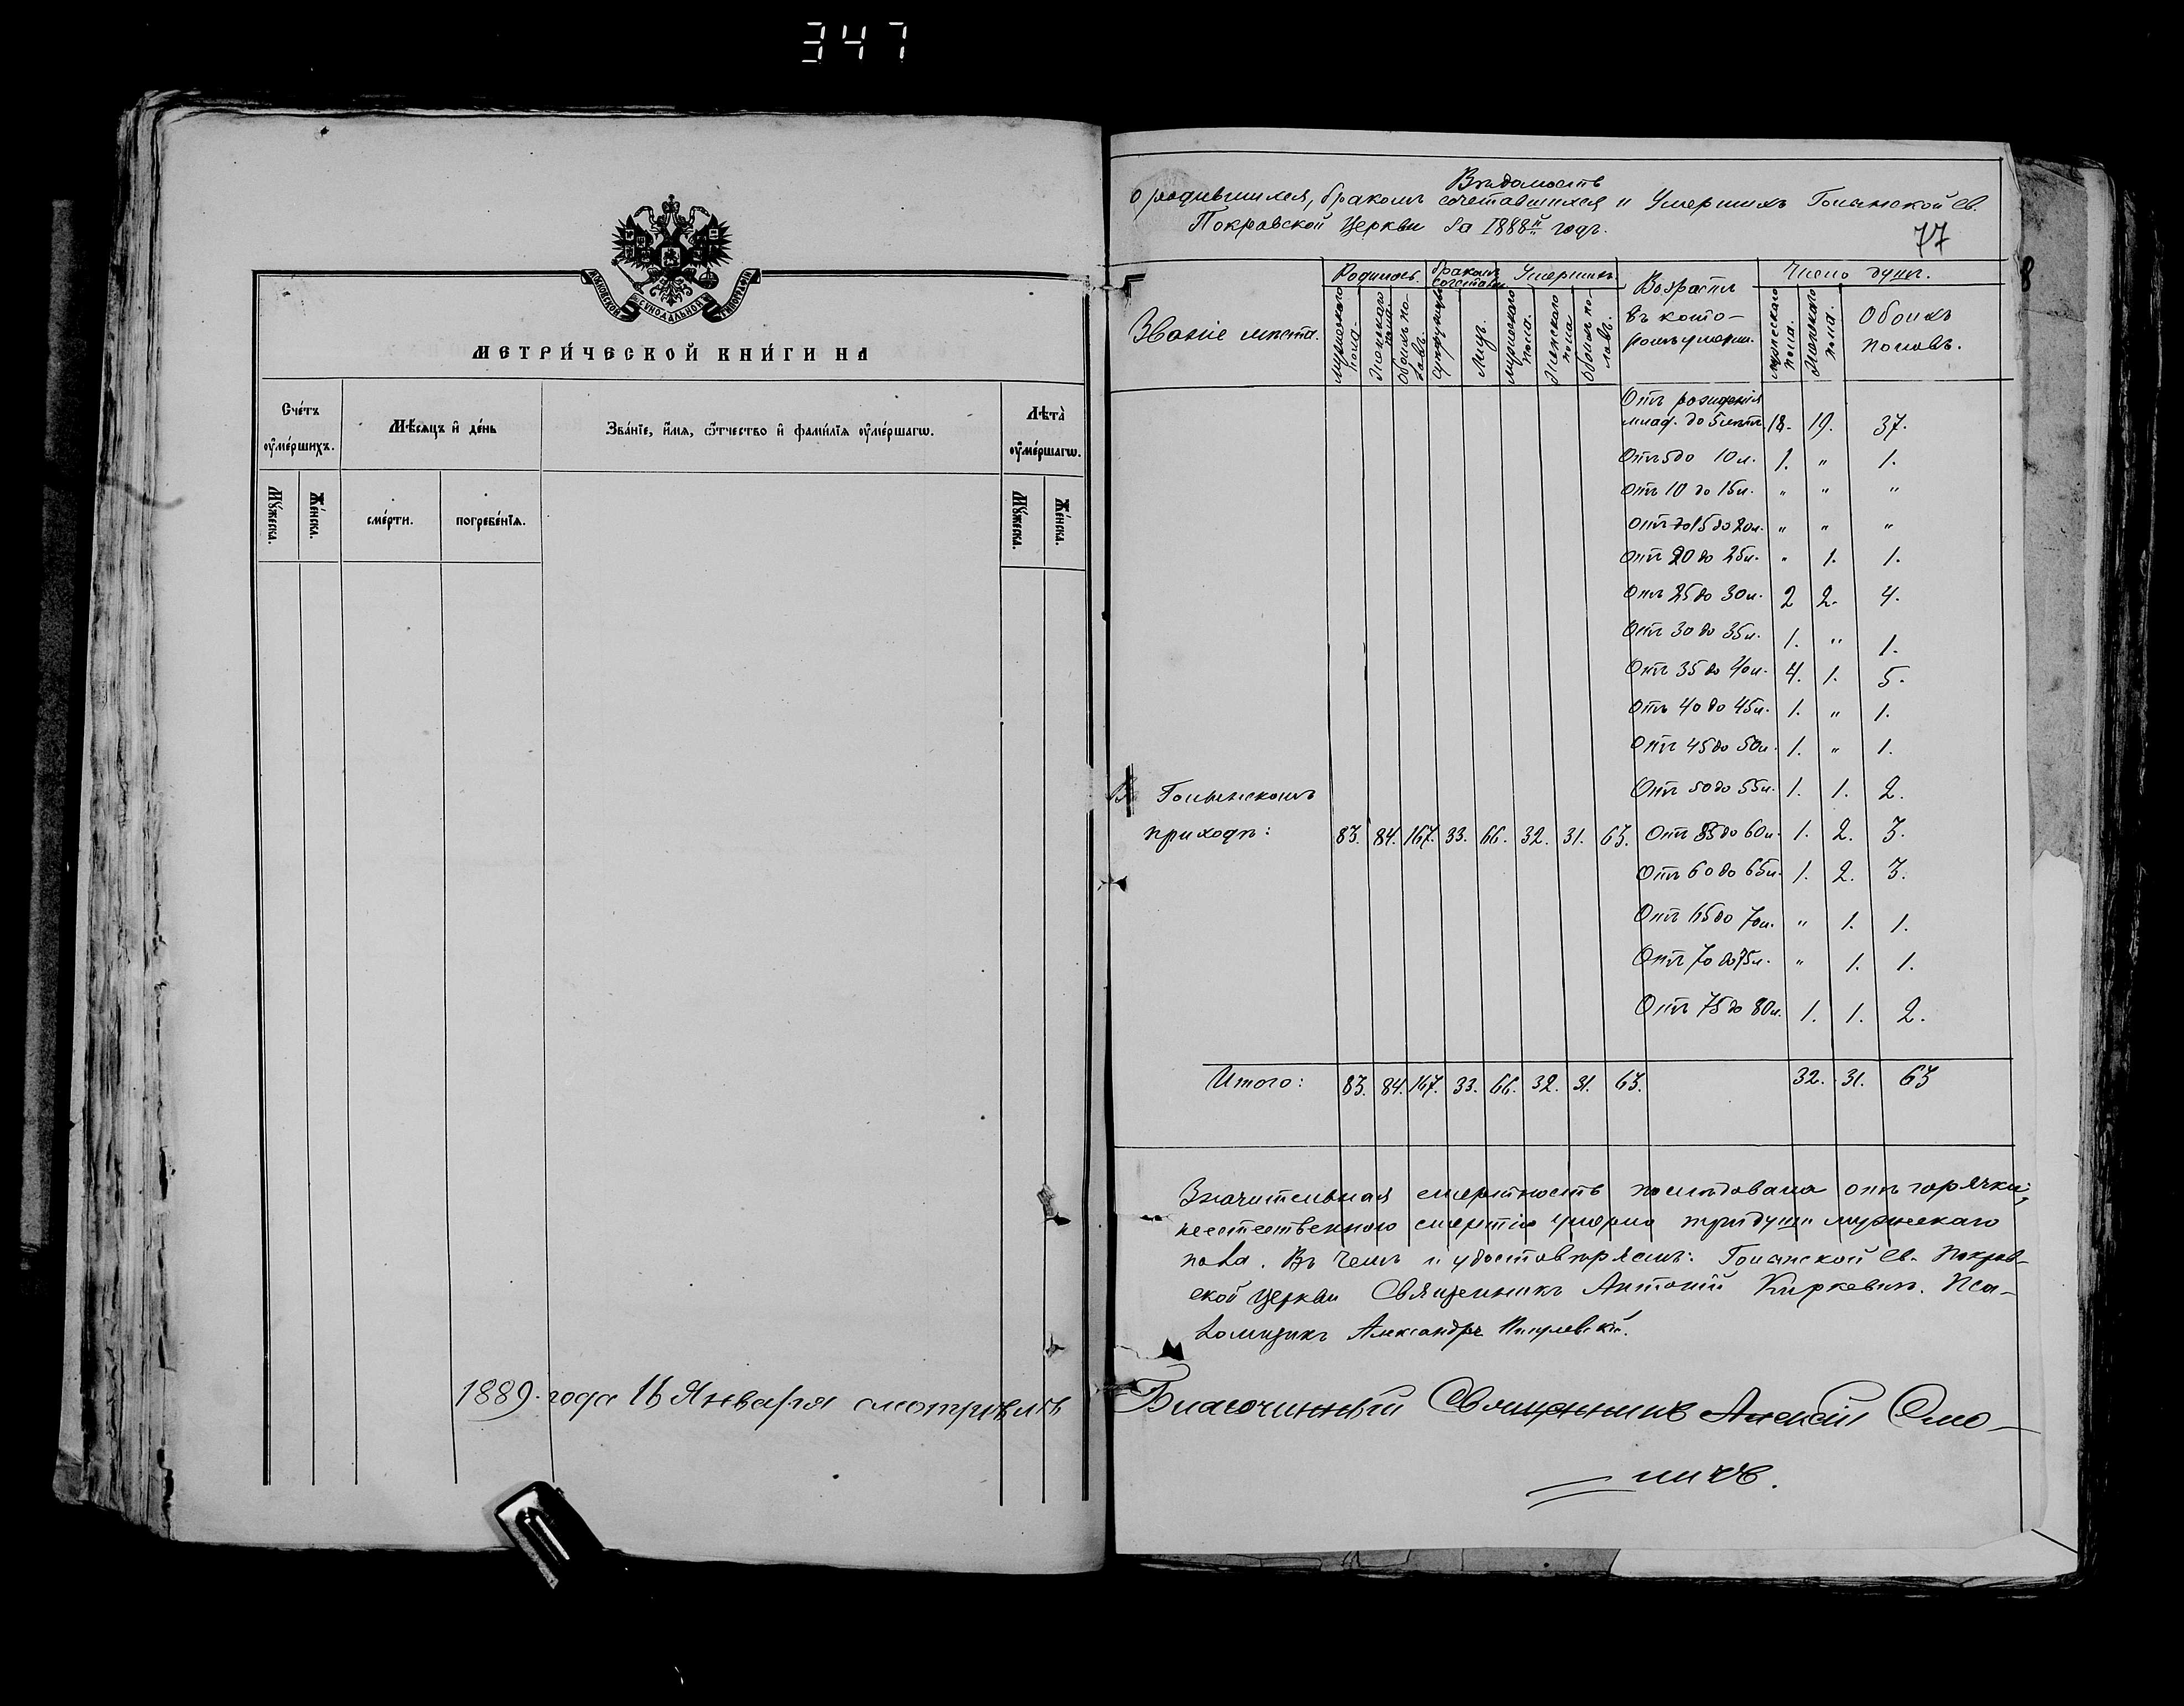 347
МОСКОВСКОЙ СѴНОДАЛЬНОЙ ТИПОГРАФІИ
МЕТРИ́ЧЕСКОЙ КНИ́ГИ НА
Сче́тъ ᲂу҆ме́ршихъ.
Мѣ́сяцъ и҆ де́нь
Зва́нїе, и҆́мя, ѻ҆́тчество и҆ фами́лїя ᲂу҆ме́ршагѡ.
Лѣта̀ ᲂу҆ме́ршагѡ.
Мꙋ́жеска.
Же́нска.
сме́рти.
погребе́нїя.
Мꙋ́жеска.
Же́нска.
1889. года 16 Января смотрѣлъ
Вѣдомость
о родившихся, бракомъ сочетавшихся и умершихъ Св.
Покровской Церкви за 1888й годъ.
77
8
Званіе мѣста.
Родилось.
Бракомъ сочетал.
Умершихъ
Возрастъ
въ кото-
ромъ умерли.
Число душъ.
мужескаго пола.
Женскаго пола.
Обоихъ по-
ловъ.
супружествъ
лицъ.
мужескаго пола.
Женскаго пола
Обоихъ по-
ловъ.
мужескаго пола.
Женскаго пола.
Обоихъ
половъ.
Отъ рожденія
млад. до 5 лѣтъ. 18. 19. 37.
Отъ 5 до 10 л. 1. " 1.
Отъ 10 до 15 л. " " "
Отъ до 15 до 20 л. " " "
Отъ 20 до 25 л. " 1. 1.
Отъ 25 до 30 л. 2 2. 4.
Отъ 30 до 35 л. 1. " 1.
Отъ 35 до 40 л. 4. 1. 5.
Отъ 40 до 45 л. 1. " 1.
Отъ 45 до 50 л. 1. " 1.
Отъ 50 до 55 л. 1. 1. 2.
В
приходѣ: 83. 84. 167. 33. 66. 32. 31. 63. Отъ 55 до 60 л. 1. 2. 3.
Отъ 60 до 65 л. 1. 2. 3.
Отъ 65 до 70 л. " 1. 1.
Отъ 70 до 75 л. " 1. 1.
Отъ 75 до 80 л. 1. 1. 2.
Итого: 83. 84. 167. 33. 66. 32. 31. 63. 32. 31. 63
Значительная смертность послѣдовала отъ горячки;
неестественною смертію умерло три души мужескаго
пола. Въ чемъ и удостовѣряемъ: Св. Покров-
ской Церкви Священникъ Антоній Киркевичъ. Пса-
ломщикъ Александръ
Благочинный Священникъ Алексій Смо-
личъ.